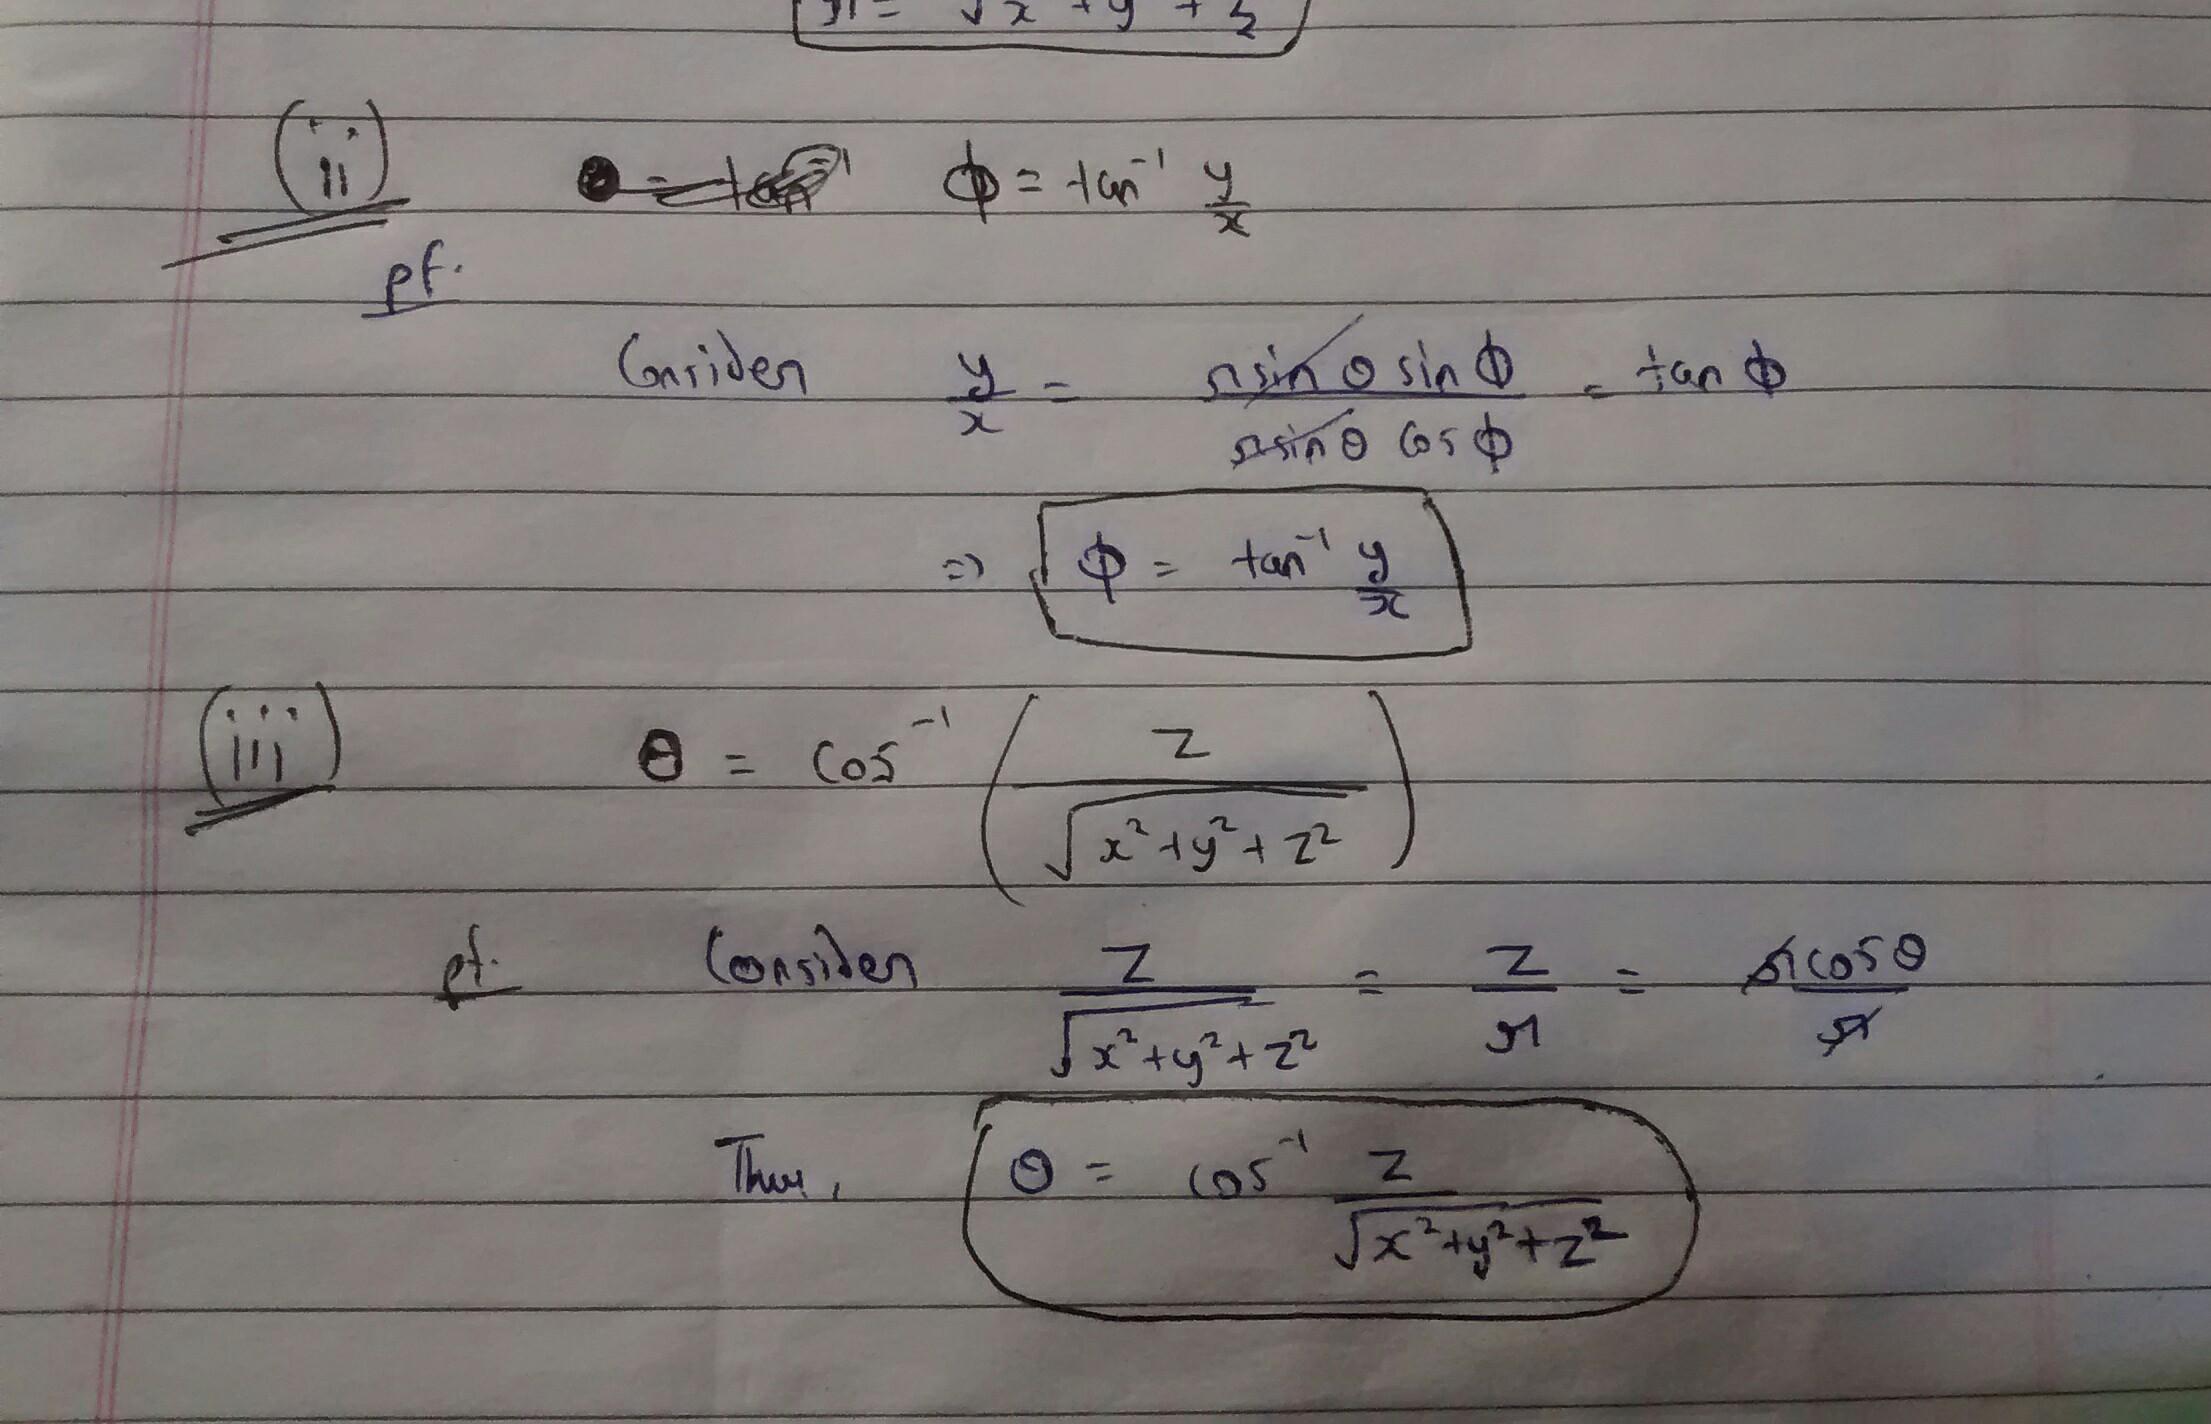 r = √x + y + z
(ii) θ = tan⁻¹ ϕ = tan⁻¹ y/x
pf.
Consider y/x = r sin θ sin ϕ / r sin θ cos ϕ = tan ϕ
=> ϕ = tan⁻¹ y/x
(iii) θ = cos⁻¹ ( z / √x²+y²+z² )
pf. Consider z / √x²+y²+z² = z/r = r cos θ / r
Thus, θ = cos⁻¹ z / √x²+y²+z²